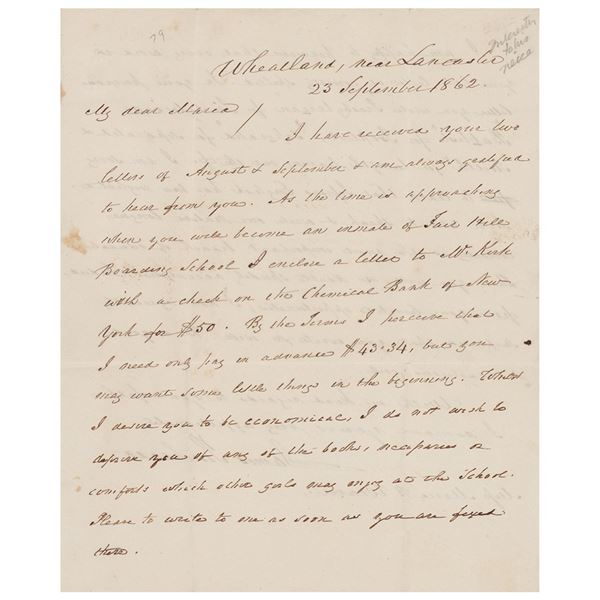 79
Interesting
to his
niece
Wheatland, near Lancaster
23 September 1862.
My dear Maria /
I have received your two
letters of August & September & am always gratified
to hear from you. As the time is approaching
when you will become an inmate of Fair Hill
Boarding School I enclose a letter to Mr. Kirk
with a check on the Chemical Bank of New
York for $50. By the Terms I perceive that
I need only pay in advance $43.34, but you
may want some little things in the beginning. Whilst
I desire you to be economical, I do not wish to
deprive you of any of the books, necessaries or
comforts which other girls may enjoy at the School.
Please to write to me as soon as you are fixed
there.